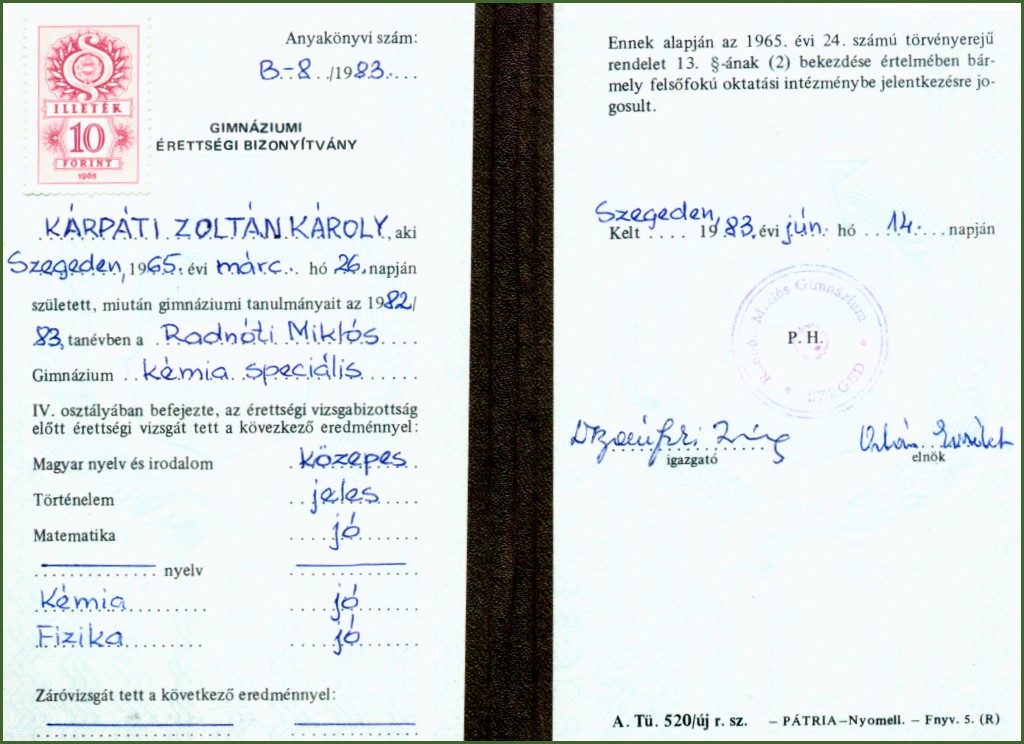 ILLETÉK
10
FORINT
1965
Anyakönyvi szám:
B-8../1983....
GIMNÁZIUMI
ÉRETTSÉGI BIZONYÍTVÁNY
KÁRPÁTI ZOLTÁN KÁROLY, aki
Szegeden, 1965. évi márc. hó 26. napján
született, miután gimnáziumi tanulmányait az 1982/
83. tanévben a Radnóti Miklós
Gimnázium kémia speciális
IV. osztályában befejezte, az érettségi vizsgabizottság
előtt érettségi vizsgát tett a kövezkező eredménnyel:
Magyar nyelv és irodalom közepes
Történelem jeles
Matematika jó
nyelv
Kémia jó
Fizika jó
Záróvizsgát tett a következő eredménnyel:
Ennek alapján az 1965. évi 24. számú törvényerejű
rendelet 13. §-ának (2) bekezdése értelmében bár-
mely felsőfokú oktatási intézménybe jelentkezésre jo-
gosult.
Szegeden,
Kelt .... 1983. évi jún. hó 14. napján
Miklós Gimnázium
P. H.
SZEGED
igazgató
elnök
A. Tü. 520/új r. sz. – PÁTRIA–Nyomell. – Fnyv. 5. (R)